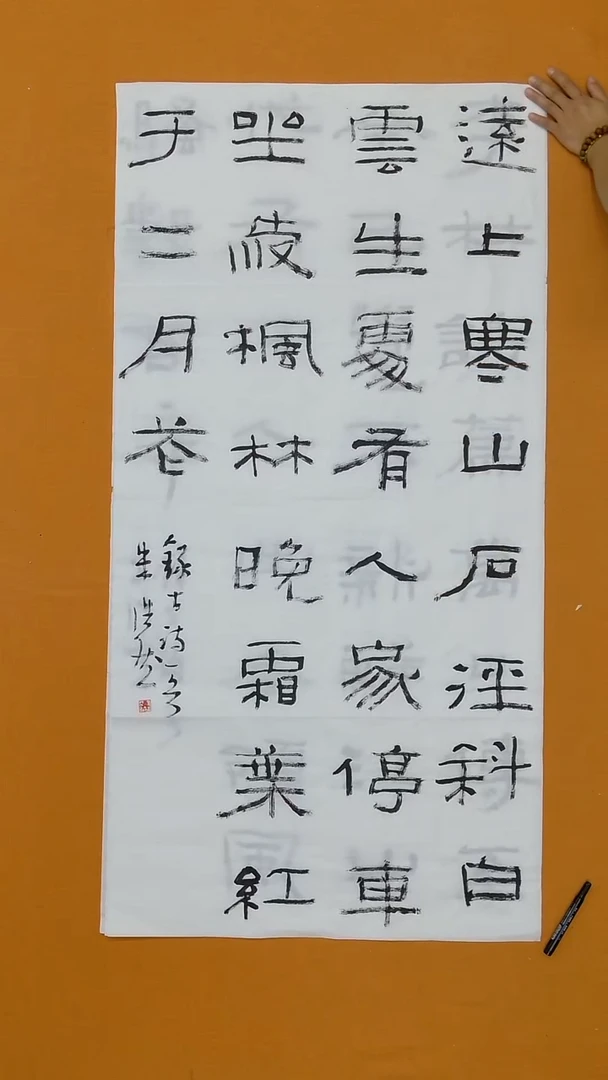 遠上寒山石涇斜白
雲生處看人家停車
坐楓林晚霜葉紅
于二月花
錄古詩一首
朱浩